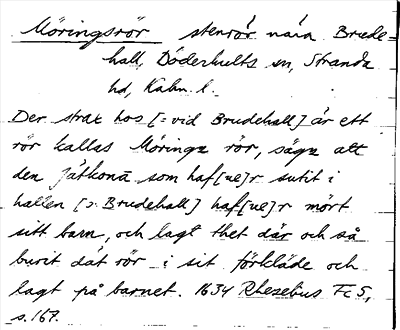 Möringsrör stenrör nära Brude-
hall, Döderhults sn, Stranda
hd, Kalm. l.
Der strax hos [= vid Brudehall] är ett
rör kallas Möringa rör, säga att
den Jätkona som haf[ue]r sutit i
hallen [ɔ: Brudehall] haf[ue]r mört
sitt barn, och lagt thet där och så
burit dät rör i sit förkläde och
lagt på barnet. 1634 Rhezelius FcS,
s. 167.